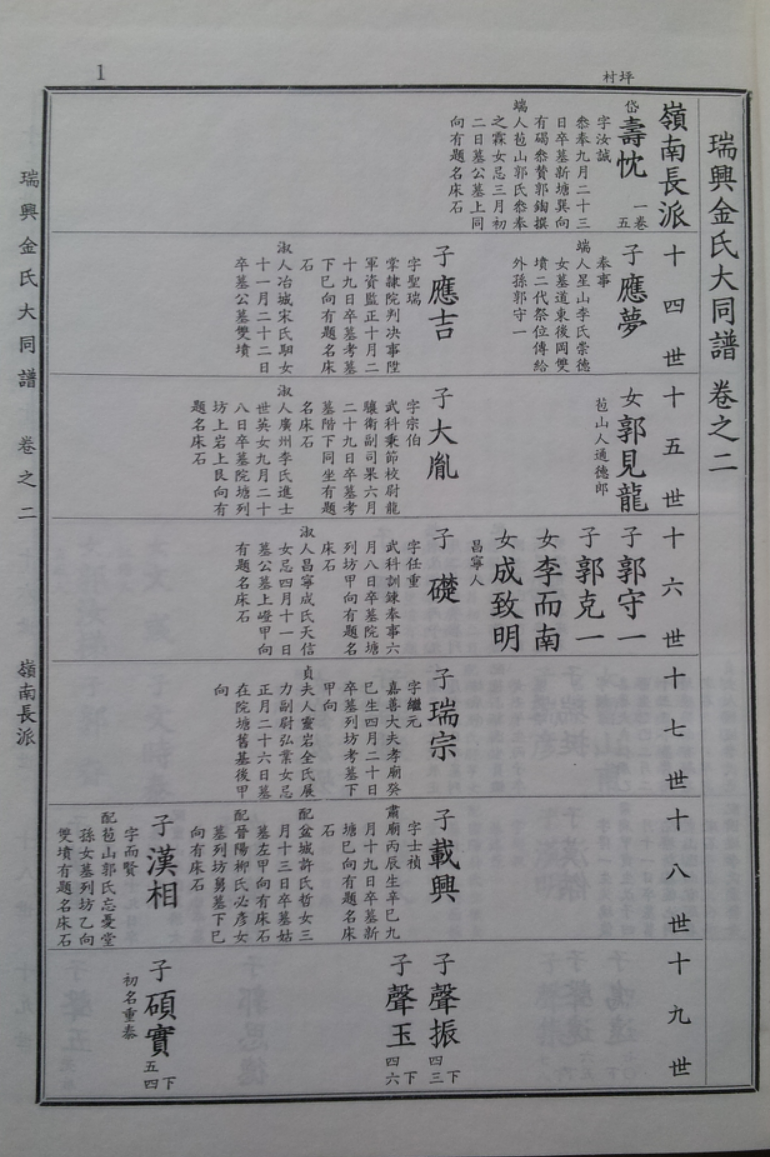 1
村坪
瑞興金氏大同譜 卷之二
嶺南長派
岱
壽忱
一卷
五
字汝誠
叅奉九月二十三
日卒墓新塘巽向
有碣叅贊郭銁撰
端人苞山郭氏叅奉
之霖女忌三月初
二日墓公墓上同
向有題名床石
十四世
子應夢
奉事
端人星山李氏崇德
女墓道東後岡雙
墳二代祭位傳給
外孫郭守一
子應吉
字聖瑞
掌隷院判决事陞
軍資監正十月二
十九日卒墓考墓
下巳向有題名床
石
淑人冶城宋氏駰女
十一月二十二日
卒墓公墓雙墳
十五世
女郭見龍
苞山人通德郎
子大胤
字宗伯
武科秉節校尉龍
驤衛副司果六月
二十九日卒墓考
墓階下同坐有題
名床石
淑人廣州李氏進士
世英女九月二十
八日卒墓院塘列
坊上岩上艮向有
題名床石
十六世
子郭守一
子郭克一
女李而南
女成致明
昌寧人
子礎
字任重
武科訓鍊奉事六
月八日卒墓院塘
列坊甲向有題名
床石
淑人昌寧成氏天信
女忌四月十一日
墓公墓上嶝甲向
有題名床石
十七世
子瑞宗
字繼元
嘉善大夫孝廟癸
巳生四月二十日
卒墓列坊考墓下
甲向
貞夫人靈岩全氏展
力副尉弘業女忌
正月二十六日墓
在院塘舊基後甲
向
十八世
子載興
字士禎
肅廟丙辰生辛巳九
月十九日卒墓新
塘巳向有題名床
石
配盆城許氏哲女三
月十三日卒墓姑
墓左甲向有床石
配晉陽柳氏必彦女
墓列坊舅墓下巳
向有床石
子漢相
字而賢
配苞山郭氏忘憂堂
孫女墓列坊乙向
雙墳有題名床石
十九世
子聲振
下
四三
子聲玉
下
四六
子碩實
下
五四
初名重泰
瑞興金氏大同譜 卷之二 嶺南長派